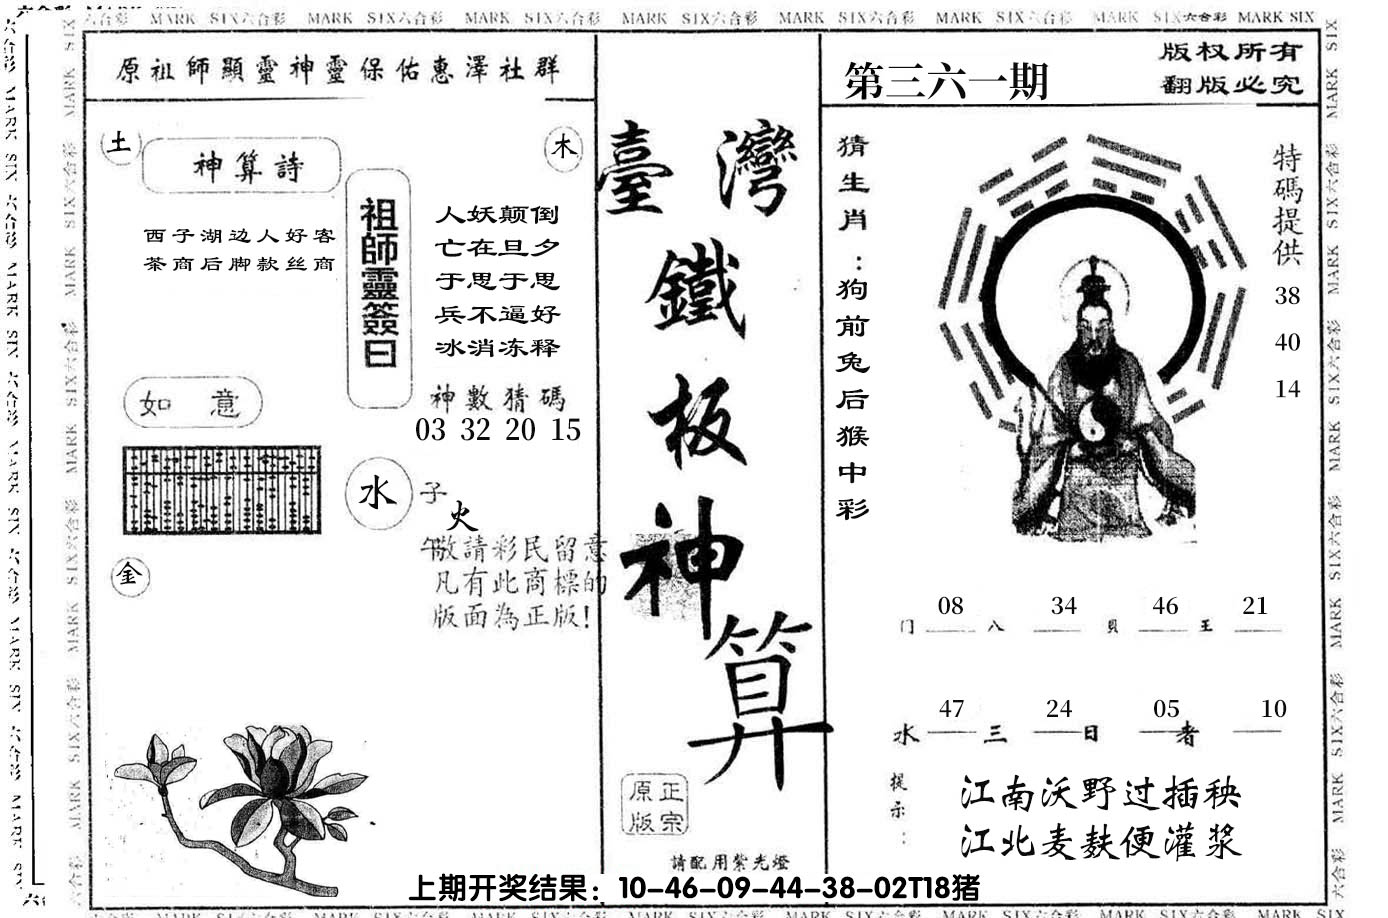 MARK SIX六合彩 MARK SIX六合彩 MARK SIX六合彩 MARK SIX六合彩 MARK SIX六合彩 MARK SIX六合彩 MARK SIX六合彩 MARK SIX
原祖師顯靈神靈保佑惠澤社群
土
神算詩
木
西子湖边人好客
茶商后脚款丝商
祖師靈簽曰
人妖颠倒
亡在旦夕
于思于思
兵不逼好
冰消冻释
神數猜碼
03 32 20 15
如意
水
子
火
午
金
敬請彩民留意
凡有此商標的
版面為正版!
臺灣
鐵
板
神
算
正宗
原版
請配用紫光燈
第三六一期
版权所有
翻版必究
猜生肖：狗前兔后猴中彩
特碼提供
38
40
14
08 34 46 21
门 八 贝 王
47 24 05 10
水 三 日 者
提示：
江南沃野过插秧
江北麦麸便灌浆
上期开奖结果：10-46-09-44-38-02T18猪